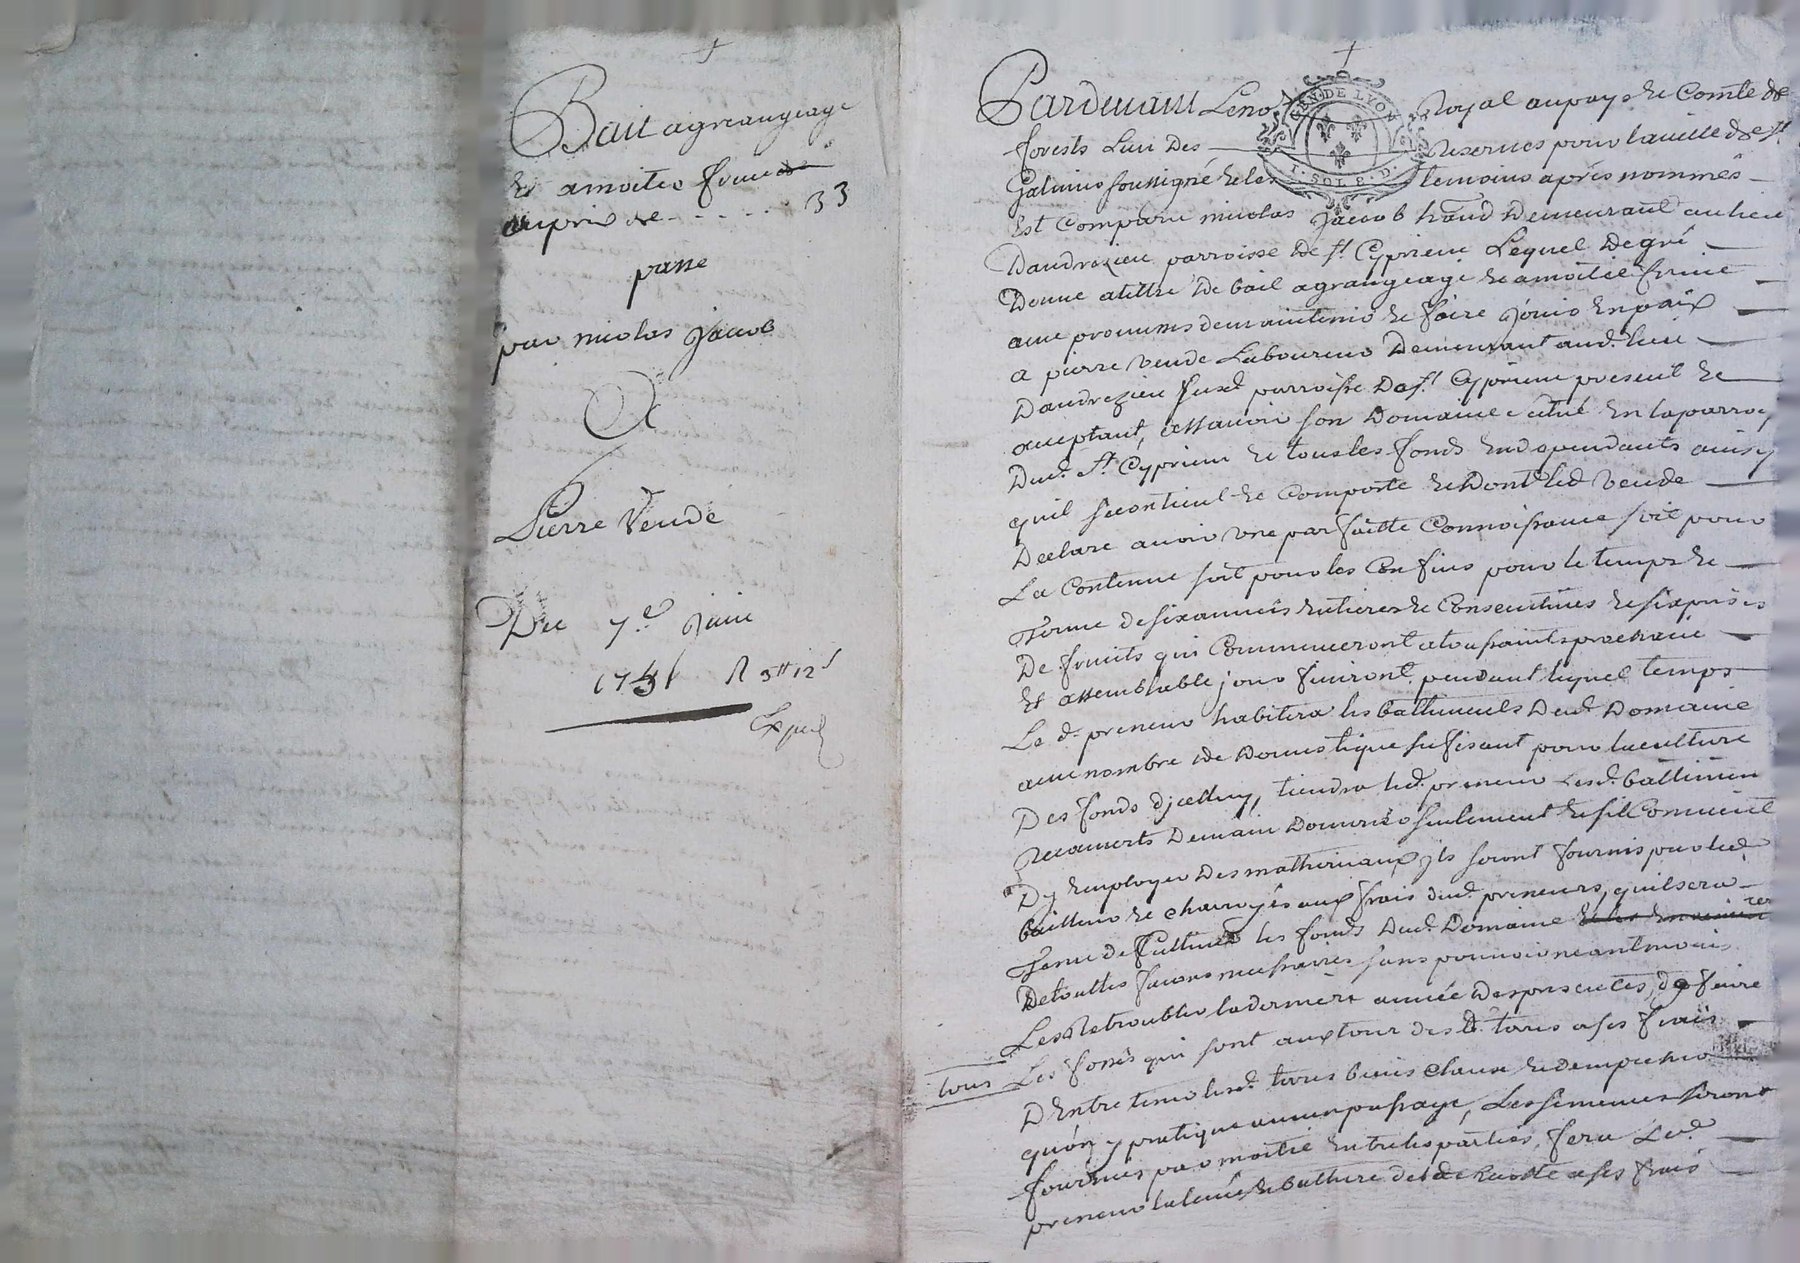 Bail agrangeage
Et amoitié fruict
auprix de - - - - - 33
passé
par nicolas Jacob
A
Pierre Vende
Du 7.e Juin
1751 R 3# 12s
Exped
Pardevant Le no Royal au pays Et Comté de
forests L'un Des Reservés pour la ville de St
Galmier soussigné Et les temoins après nommés
Est Comparu nicolas Jacob hand Demeurant au lieu
Dandrezieu parroisse De St Cyprien Lequel De gré
Donne atittre De bail agrangeage Et amoitié fruict
avec promesses de maintenir Et faire Jouir En paix
A pierre Vende Laboureur Demeurant aud. lieu
Dandrezieu susd parroisse De St Cyprien present Et
acceptant, assavoir son Domaine citué En la parroi
Dud. St Cyprien Et tous les fonds En dependants ainsy
quil se contient Et Comporte Et Dont led Vende
Declare avoir Une parfaitte Connoissance soit pour
La Contenue soit pour les Confins pour le temps Et
Terme de six années Entieres Et Consecutives Et six prises
De fruits qui Commenceront a toussaints prochaine
Et assemblable jour finiront pendant lequel temps
Le d. preneur habitera les battiments Dud. Domaine
avec nombre De Domestique sufisant pour la culture
Des fonds D'jcelluy, tiendra led. preneur Lesd. battimen
Recouverts De main Douvrier seulement Et s'il Convient
Dy Employer Des matheriaux jls seront fournis par led
bailleur Et charroyés aux frais dud. preneur, quil sera
Tenu de Cultiver les fonds Dud. Domaine
De touttes façons necessaires sans pouvoir neantmoins
Les Retroubler la derniere année Des presentes, de faire
tous Les fossés qui sont aux tour des d. terres a ses frais
D'Entretenir lesd. terres bien closes Et dempecher
quon y pratique aucun passage, Les semences seront
fournies par moitié Entre les parties, fera Led.
preneur la levée Et batture de la Recolte a ses frais